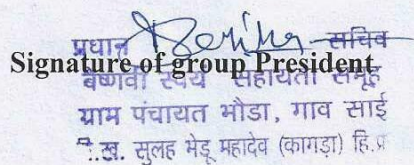 प्रधान सचिव
Signature of group President
वैष्णवी स्वयं सहायता समूह
ग्राम पंचायत भौडा, गाव साई
ख. सुलह भेडू महादेव (कागडा) हि.प्र